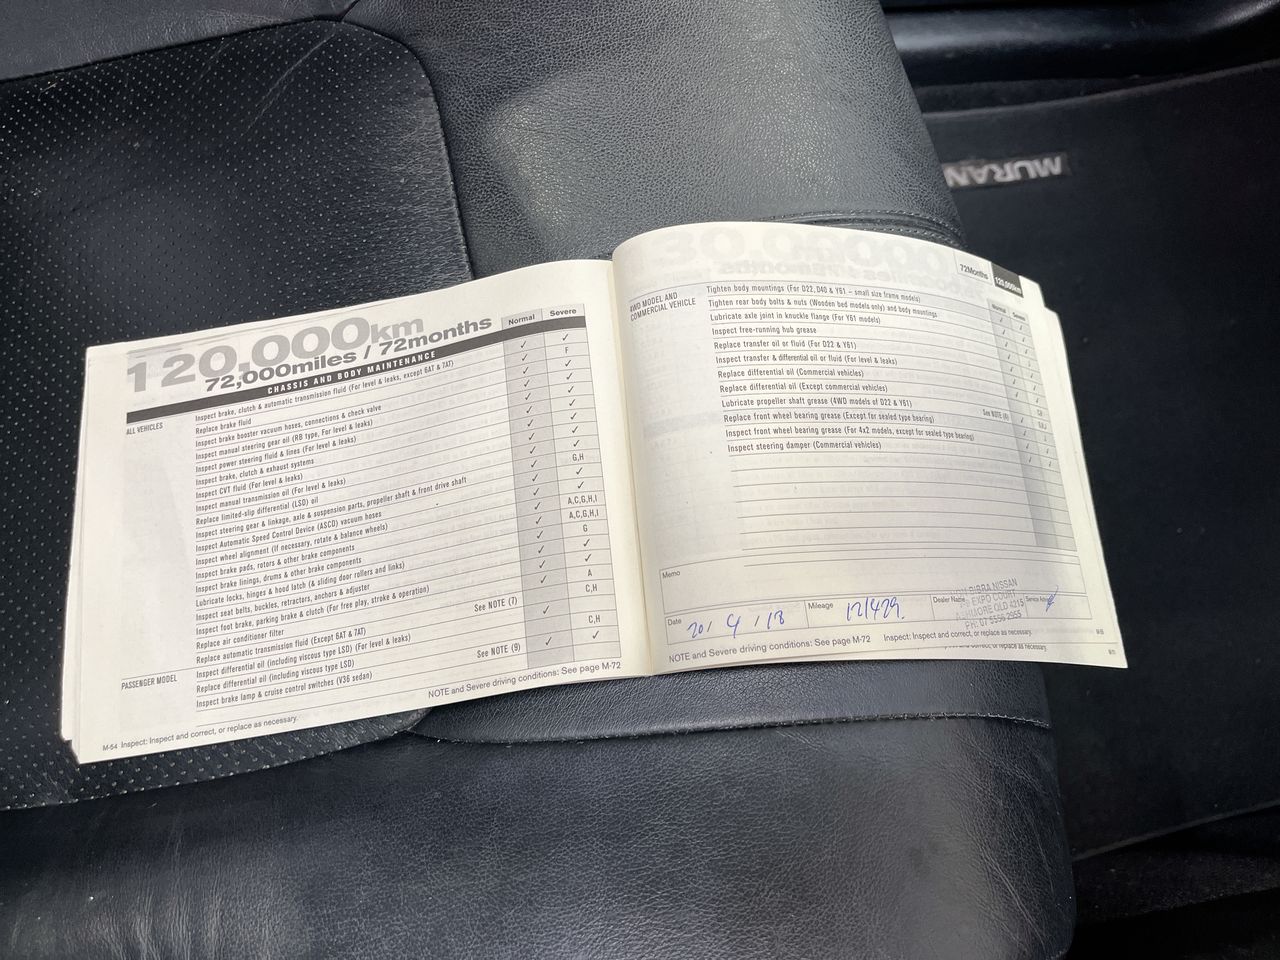 MURAN
120,000km
72,000miles / 72months
Normal Severe
CHASSIS AND BODY MAINTENANCE
ALL VEHICLES
Inspect brake, clutch & automatic transmission fluid (For level & leaks, except 6AT & 7AT) ✓ ✓
Replace brake fluid ✓ F
Inspect brake booster vacuum hoses, connections & check valve ✓ ✓
Inspect manual steering gear oil (RB type, For level & leaks) ✓ ✓
Inspect power steering fluid & lines (For level & leaks) ✓ ✓
Inspect brake, clutch & exhaust systems ✓ ✓
Inspect CVT fluid (For level & leaks) ✓ ✓
Inspect manual transmission oil (For level & leaks) ✓ ✓
Replace limited-slip differential (LSD) oil ✓ G,H
Inspect steering gear & linkage, axle & suspension parts, propeller shaft & front drive shaft
Inspect Automatic Speed Control Device (ASCD) vacuum hoses
Inspect wheel alignment (If necessary, rotate & balance wheels)
Inspect brake pads, rotors & other brake components A,C,G,H,I
Inspect brake linings, drums & other brake components A,C,G,H,I
Lubricate locks, hinges & hood latch (& sliding door rollers and links) G
Inspect seat belts, buckles, retractors, anchors & adjuster
Inspect foot brake, parking brake & clutch (For free play, stroke & operation)
Replace air conditioner filter A
Replace automatic transmission fluid (Except 6AT & 7AT) See NOTE (7) C,H
PASSENGER MODEL
Inspect differential oil (including viscous type LSD) (For level & leaks) ✓
Replace differential oil (including viscous type LSD) See NOTE (9) C,H
Inspect brake lamp & cruise control switches (V36 sedan) ✓ ✓
NOTE and Severe driving conditions: See page M-72
M-54 Inspect: Inspect and correct, or replace as necessary.
72Months 120,000km
Normal Severe
4WD MODEL AND COMMERCIAL VEHICLE
Tighten body mountings (For D22, D40 & Y61 – small size frame models)
Tighten rear body bolts & nuts (Wooden bed models only) and body mountings
Lubricate axle joint in knuckle flange (For Y61 models)
Inspect free-running hub grease
Replace transfer oil or fluid (For D22 & Y61)
Inspect transfer & differential oil or fluid (For level & leaks)
Replace differential oil (Commercial vehicles)
Replace differential oil (Except commercial vehicles)
Lubricate propeller shaft grease (4WD models of D22 & Y61)
Replace front wheel bearing grease (Except for sealed type bearing) See NOTE (6)
Inspect front wheel bearing grease (For 4x2 models, except for sealed type bearing)
Inspect steering damper (Commercial vehicles)
Memo
Date 20/ 4 / 18
Mileage 121429.
Dealer Name
Service Advisor
BIRRA NISSAN
EXPO COURT
HMORE QLD 4215
PH: 07 5556 2955
NOTE and Severe driving conditions: See page M-72 Inspect: Inspect and correct, or replace as necessary.
and correct, or replace as necessary.